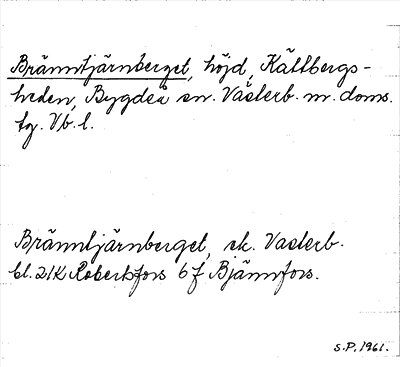 Bränntjärnberget, höjd, Kättbergs-
heden, Bygdeå sn. Västerb. m. doms.
tg. Vb. l.
Bränntjärnberget, ek. Västerb.
bl. 21K Robertsfors 6 f Bjännfors.
S.P. 1961.